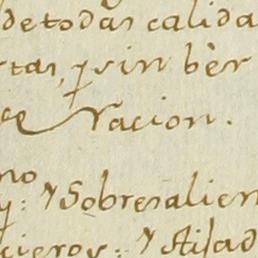 de todas calida
rtas, y sin bèr
ce Nacion.
no
y: y Sobresalien
cieros: y Aisad